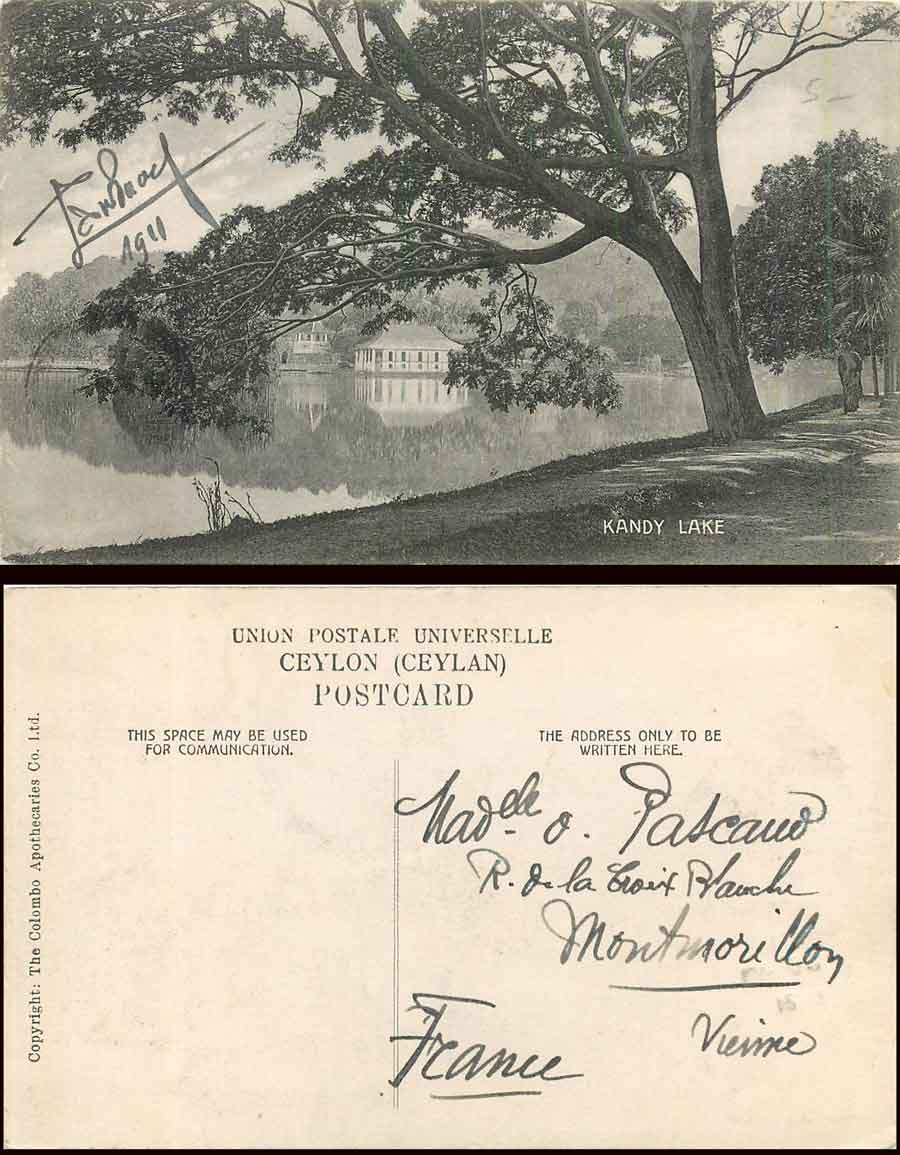 5-
1911
KANDY LAKE
UNION POSTALE UNIVERSELLE
CEYLON (CEYLAN)
POSTCARD
THIS SPACE MAY BE USED
FOR COMMUNICATION.
THE ADDRESS ONLY TO BE
WRITTEN HERE.
Copyright: The Colombo Apothecaries Co. Ltd.
Madelle O. Pascaud
R. de la Croix Blanche
Montmorillon
Vienne
France